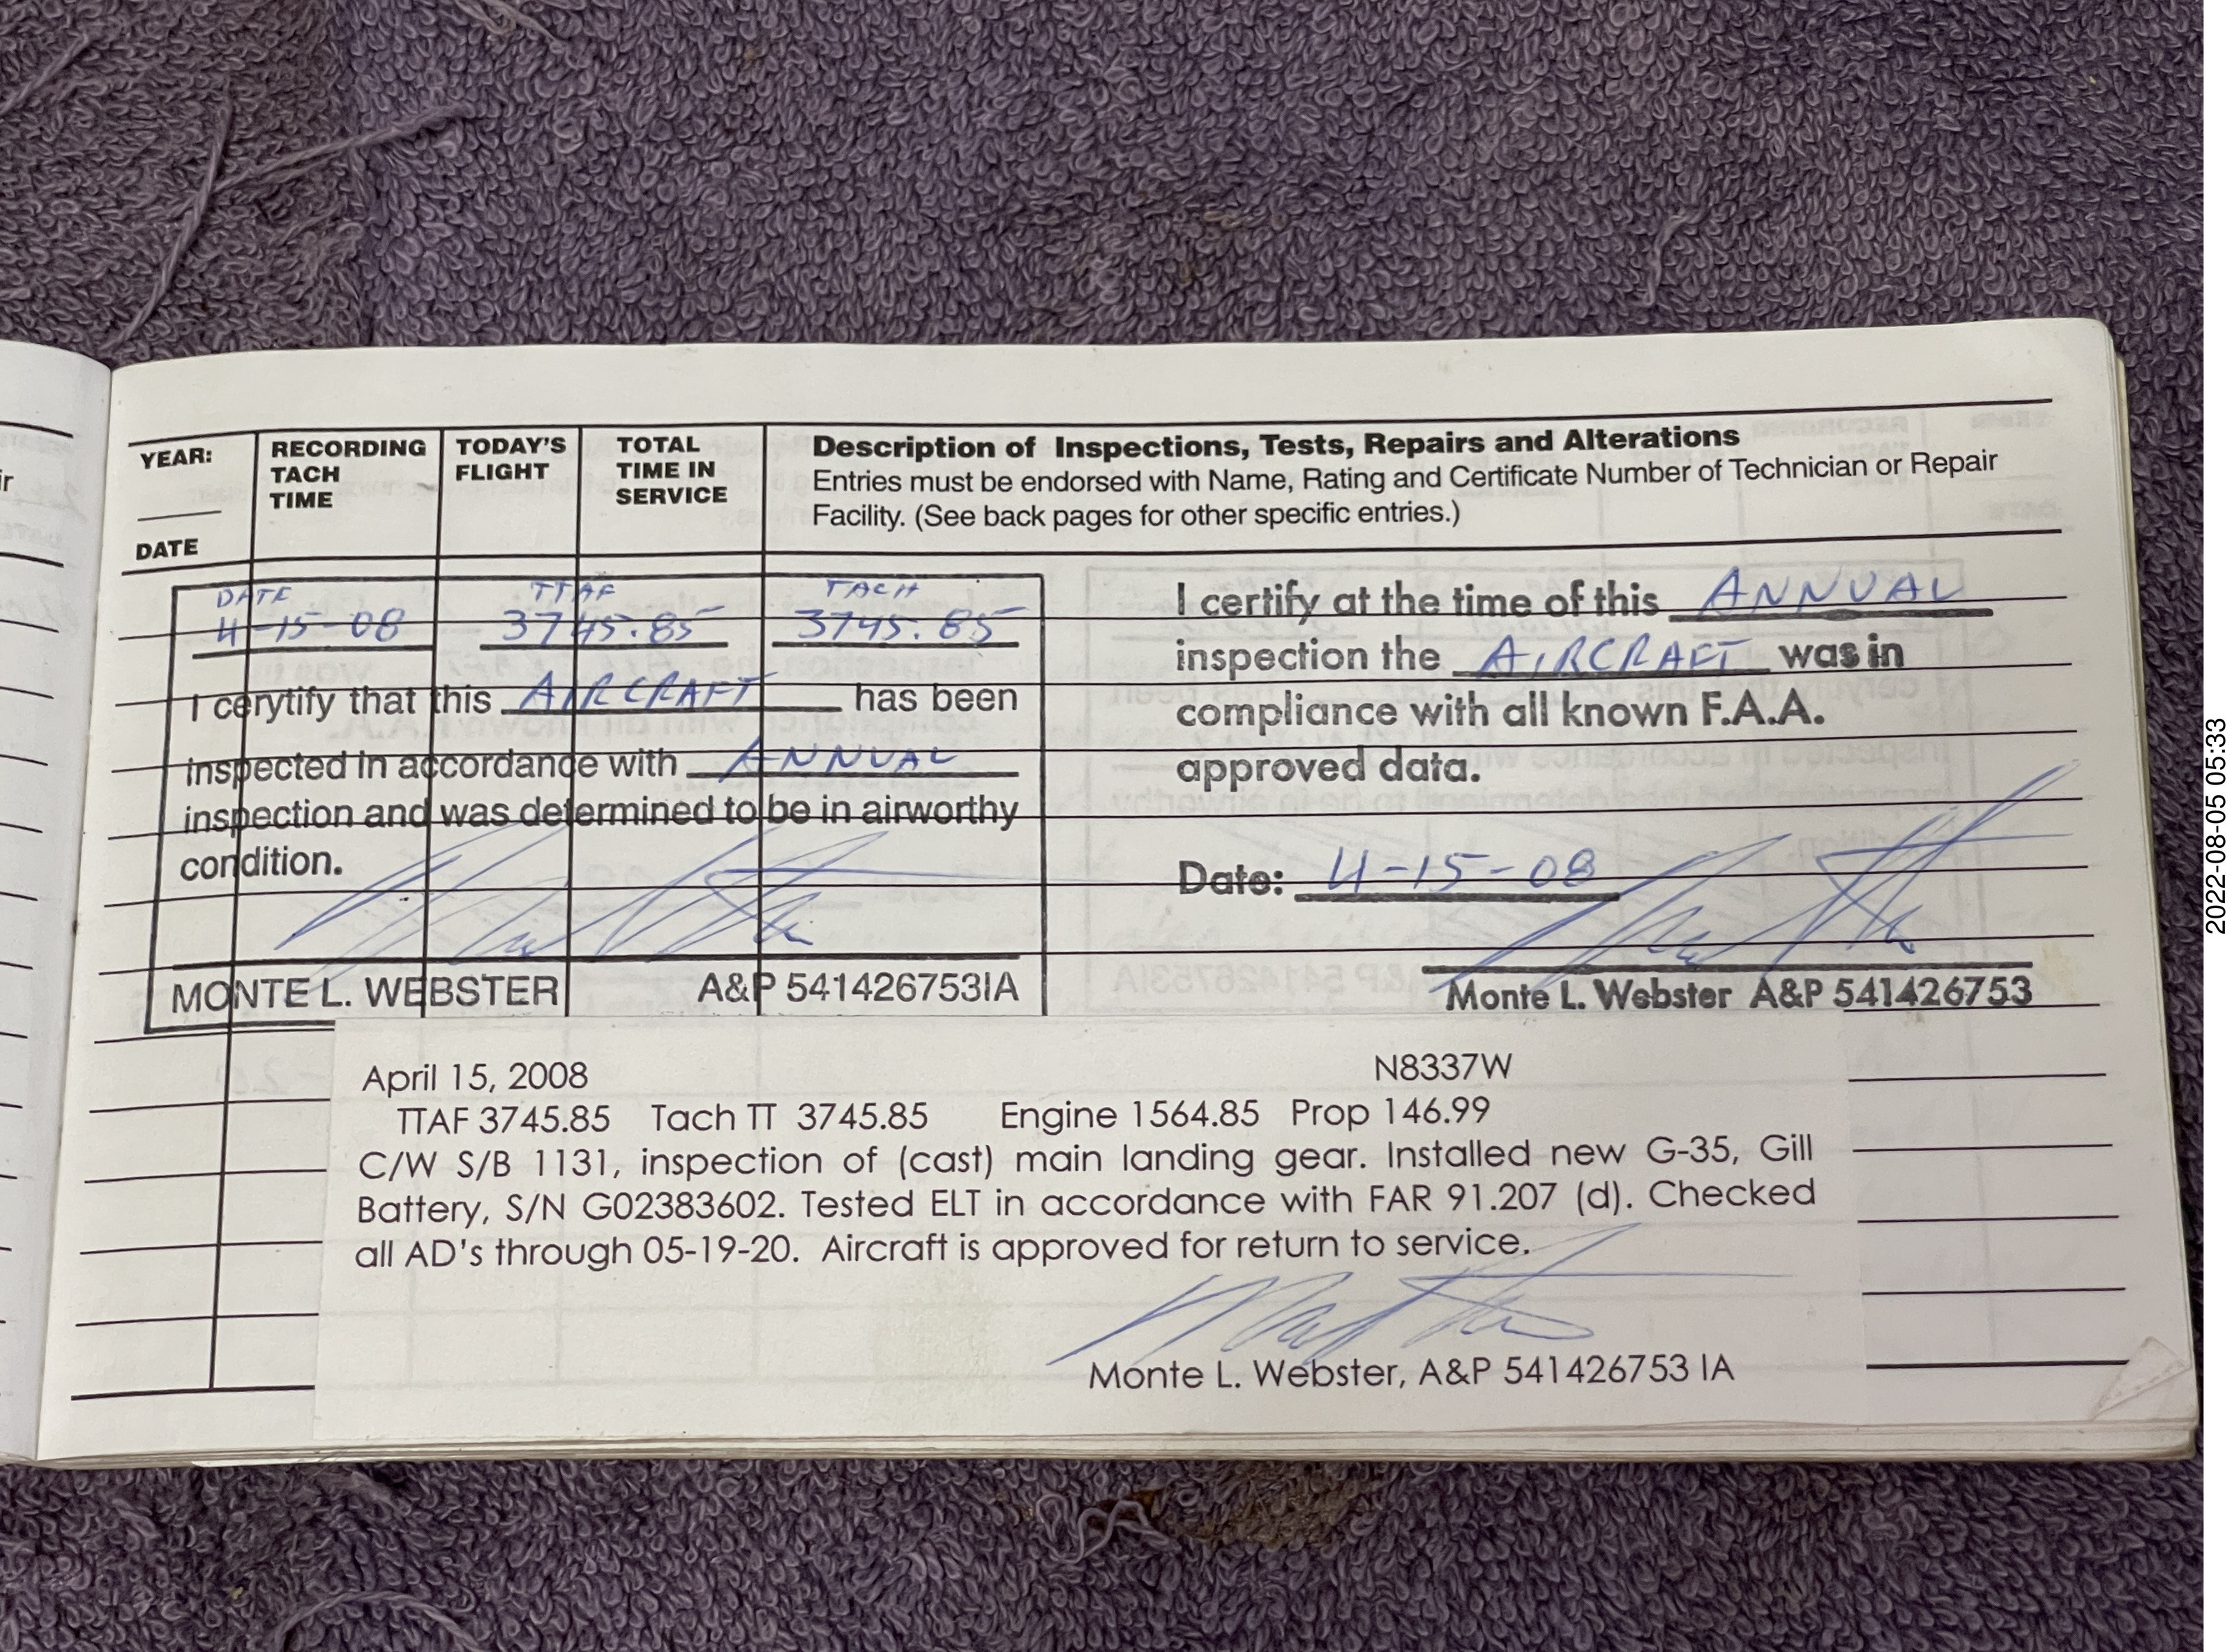 YEAR:
DATE
RECORDING
TACH
TIME
TODAY'S
FLIGHT
TOTAL
TIME IN
SERVICE
Description of Inspections, Tests, Repairs and Alterations
Entries must be endorsed with Name, Rating and Certificate Number of Technician or Repair
Facility. (See back pages for other specific entries.)
DATE TTAF TACH
4-15-08 3745.85 3745.85
I cerytify that this AIRCRAFT has been
inspected in accordance with ANNUAL
inspection and was determined to be in airworthy
condition.
MONTE L. WEBSTER A&P 541426753IA
I certify at the time of this ANNUAL
inspection the AIRCRAFT was in
compliance with all known F.A.A.
approved data.
Date: 4-15-08
Monte L. Webster A&P 541426753
April 15, 2008 N8337W
TTAF 3745.85 Tach TT 3745.85 Engine 1564.85 Prop 146.99
C/W S/B 1131, inspection of (cast) main landing gear. Installed new G-35, Gill
Battery, S/N G02383602. Tested ELT in accordance with FAR 91.207 (d). Checked
all AD's through 05-19-20. Aircraft is approved for return to service.
Monte L. Webster, A&P 541426753 IA
2022-08-05 05:33